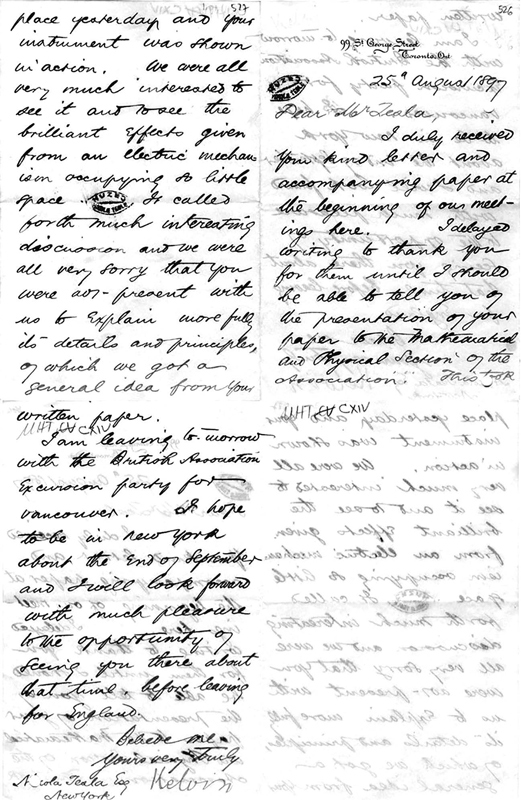 526
99 St George Street
Toronto, Ont
25th August 1897
Dear Mr Tesla
I duly received
your kind letter and
accompanying paper at
the beginning of our meet-
ings here. I delayed
writing to thank you
for them until I should
be able to tell you of
the presentation of your
paper to the Mathematical
and Physical Section of the
Association. This took
527
place yesterday and your
instrument was shown
in action. We were all
very much interested to
see it and to see the
brilliant effects given
from an electric mechan
ism occupying so little
space. It called
forth much interesting
discussion and we were
all very sorry that you
were not present with
us to explain more fully
its details and principles,
of which we got a
general idea from your
written paper.
I am leaving to morrow
with the British Association
Excursion party for
Vancouver. I hope
to be in New York
about the end of September
and I will look forward
with much pleasure
to the opportunity of
seeing you there about
that time, before leaving
for England.
Believe me
Yours very truly
Kelvin
Nicola Tesla Esq
New York